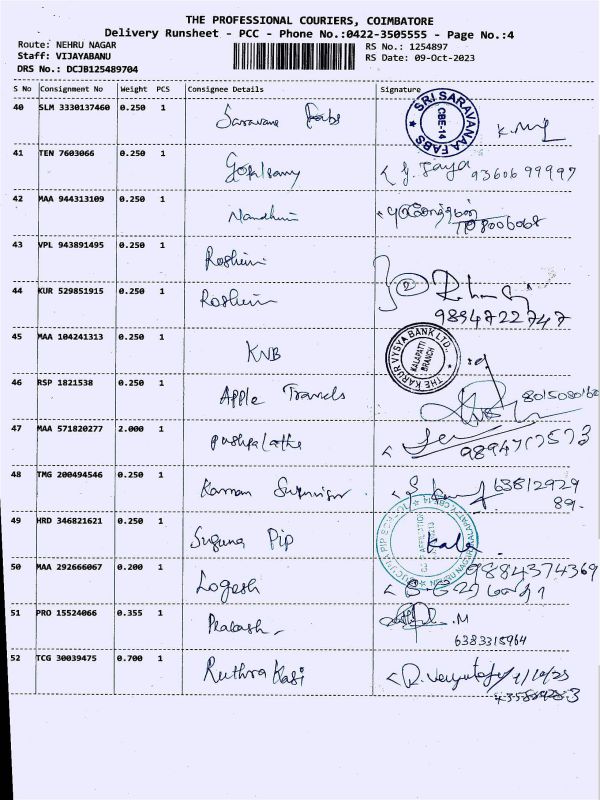 THE PROFESSIONAL COURIERS, COIMBATORE
Delivery Runsheet - PCC - Phone No.:0422-3505555 - Page No.:4
Route: NEHRU NAGAR
RS No.: 1254897
Staff: VIJAYABANU
RS Date: 09-Oct-2023
DRS No.: DCJB125489704
S No Consignment No Weight PCS Consignee Details Signature
40 SLM 3330137460 0.250 1 Saravana Fabs
SRI SARAVANAA FABS CBE-14
41 TEN 7603066 0.250 1 Gokulsamy
Jaya 93606 99997
42 MAA 944313109 0.250 1 Nandhini
43 VPL 943891495 0.250 1 Roshini
44 KUR 529851915 0.250 1 Roshini
2
9894722747
45 MAA 104241313 0.250 1 KVB
THE KARUR VYSYA BANK LTD., KALAPATTI BRANCH
46 RSP 1821538 0.250 1 Apple Travels
47 MAA 571820277 2.000 1 pushpalatha
48 TMG 200494546 0.250 1 Kannan Supervisor
63812929
89.
49 HRD 346821621 0.250 1 Suguna Pip
Kala
50 MAA 292666067 0.200 1 Logesh
9884374369
51 PRO 15524066 0.355 1 Prakash
.M
6383315964
52 TCG 30039475 0.700 1 Ruthra Kasi